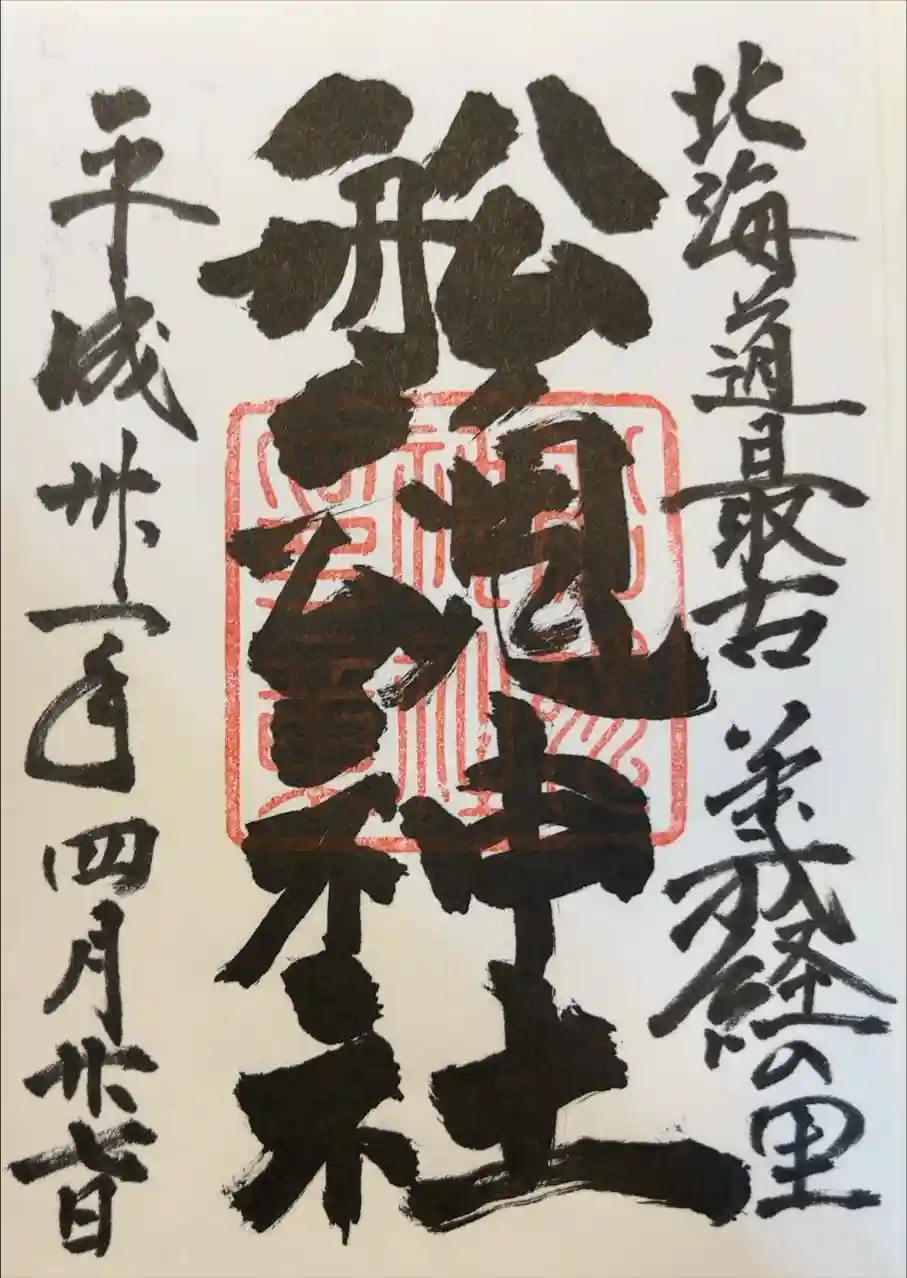 北海道最古 義経の里
舩魂神社
平成卅一年 四月廿七日